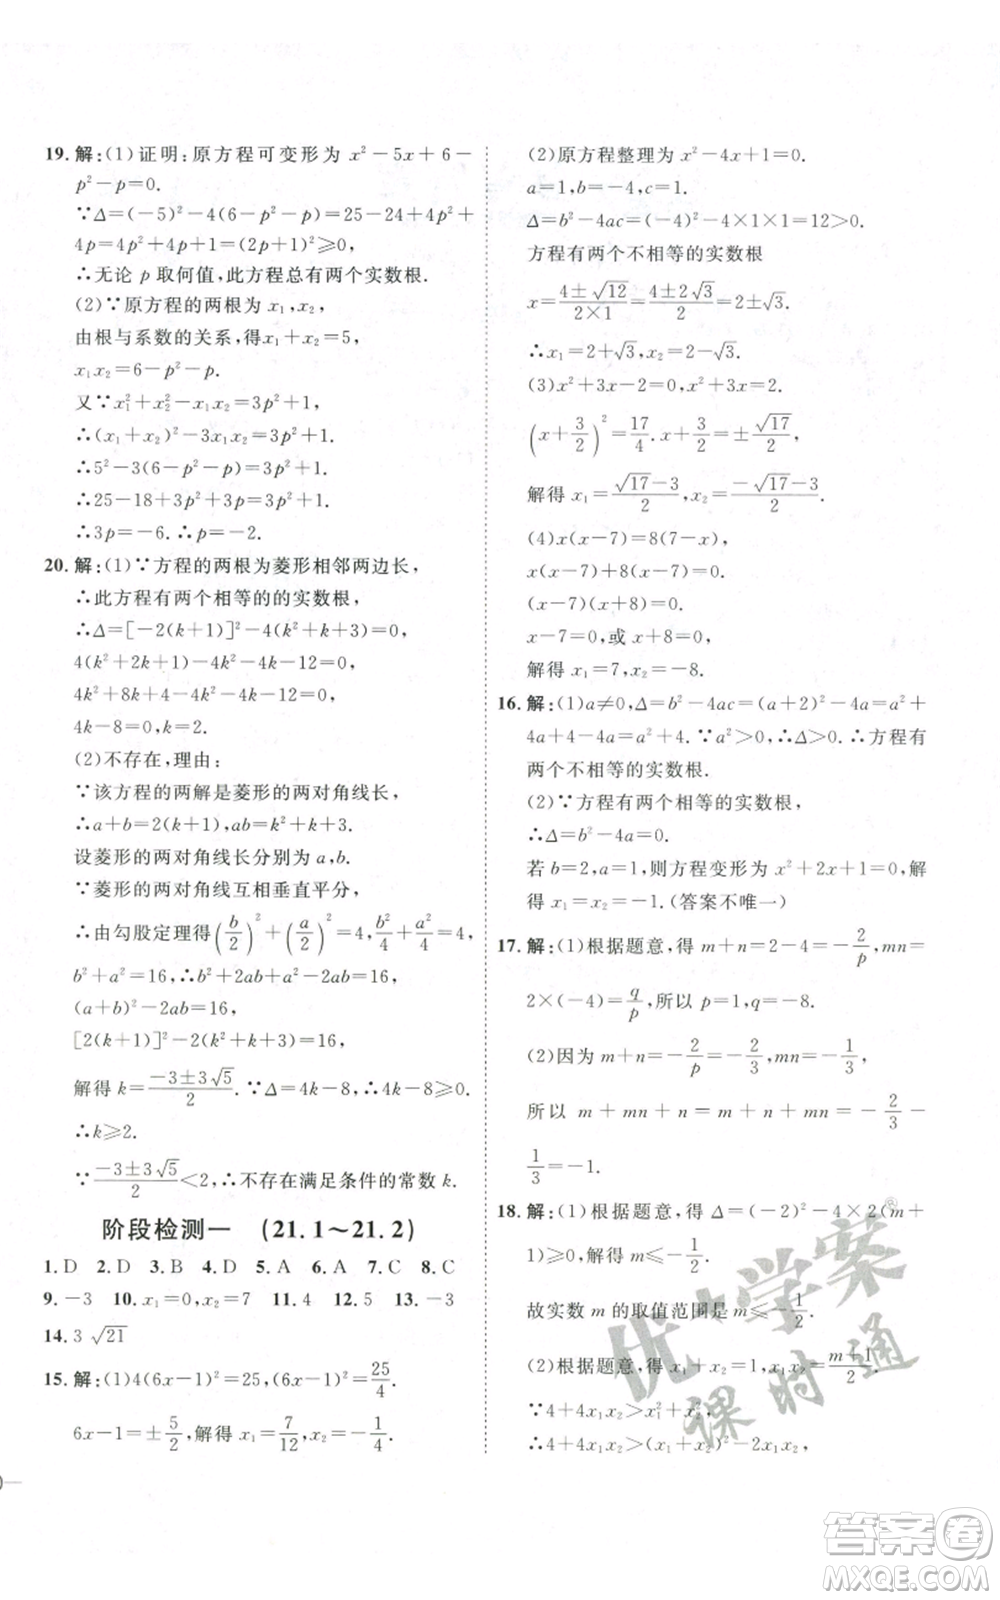 19. 解:(1)证明:原方程可变形为 x²-5x+6-
p²-p=0.
∵Δ=(-5)²-4(6-p²-p)=25-24+4p²+
4p=4p²+4p+1=(2p+1)²≥0,
∴无论 p 取何值,此方程总有两个实数根.
(2)∵原方程的两根为 x₁,x₂,
由根与系数的关系,得x₁+x₂=5,
x₁x₂=6-p²-p.
又∵x₁²+x₂²-x₁x₂=3p²+1,
∴(x₁+x₂)²-3x₁x₂=3p²+1.
∴5²-3(6-p²-p)=3p²+1.
∴25-18+3p²+3p=3p²+1.
∴3p=-6. ∴p=-2.
20. 解:(1)∵方程的两根为菱形相邻两边长,
∴此方程有两个相等的的实数根,
∴Δ=[-2(k+1)]²-4(k²+k+3)=0,
4(k²+2k+1)-4k²-4k-12=0,
4k²+8k+4-4k²-4k-12=0,
4k-8=0,k=2.
(2)不存在,理由:
∵该方程的两解是菱形的两对角线长,
∴a+b=2(k+1),ab=k²+k+3.
设菱形的两对角线长分别为 a,b.
∵菱形的两对角线互相垂直平分,
∴由勾股定理得(b/2)²+(a/2)²=4,b²/4+a²/4=4,
b²+a²=16,∴b²+2ab+a²-2ab=16,
(a+b)²-2ab=16,
[2(k+1)]²-2(k²+k+3)=16,
解得 k=(-3±3√5)/2. ∵Δ=4k-8,∴4k-8≥0.
∴k≥2.
∵(-3±3√5)/2<2,∴不存在满足条件的常数 k.
阶段检测一 (21.1~21.2)
1. D 2. D 3. B 4. D 5. A 6. D 7. C 8. C
9. -3 10. x₁=0,x₂=7 11. 4 12. 5 13. -3
14. 3 √21
15. 解:(1)4(6x-1)²=25,(6x-1)²=25/4.
6x-1=±5/2,解得 x₁=7/12,x₂=-1/4.
(2)原方程整理为 x²-4x+1=0.
a=1,b=-4,c=1.
Δ=b²-4ac=(-4)²-4×1×1=12>0.
方程有两个不相等的实数根
x=(4±√12)/(2×1)=(4±2√3)/2=2±√3.
∴x₁=2+√3,x₂=2-√3.
(3)x²+3x-2=0,x²+3x=2.
(x+3/2)²=17/4. x+3/2=±√17/2,
解得 x₁=(√17-3)/2,x₂=(-√17-3)/2.
(4)x(x-7)=8(7-x),
x(x-7)+8(x-7)=0.
(x-7)(x+8)=0.
x-7=0,或 x+8=0,
解得 x₁=7,x₂=-8.
16. 解:(1)a≠0,Δ=b²-4ac=(a+2)²-4a=a²+
4a+4-4a=a²+4. ∵a²>0,∴Δ>0. ∴方程有
两个不相等的实数根.
(2)∵方程有两个相等的实数根,
∴Δ=b²-4a=0.
若 b=2,a=1,则方程变形为 x²+2x+1=0,解
得 x₁=x₂=-1.(答案不唯一)
17. 解:(1)根据题意,得 m+n=2-4=-2/p,mn=
2×(-4)=q/p,所以 p=1,q=-8.
(2)因为 m+n=-2/p=-2/3,mn=-1/3,
所以 m+mn+n=m+n+mn=-2/3-
1/3=-1.
18. 解:(1)根据题意,得 Δ=(-2)²-4×2(m+
1)≥0,解得 m≤-1/2.
故实数 m 的取值范围是 m≤-1/2.
(2)根据题意,得 x₁+x₂=1,x₁x₂=(m+1)/2,
∵4+4x₁x₂>x₁²+x₂²,
∴4+4x₁x₂>(x₁+x₂)²-2x₁x₂,
优+学案
课时通
®
答案卷
www.daanjuan.com